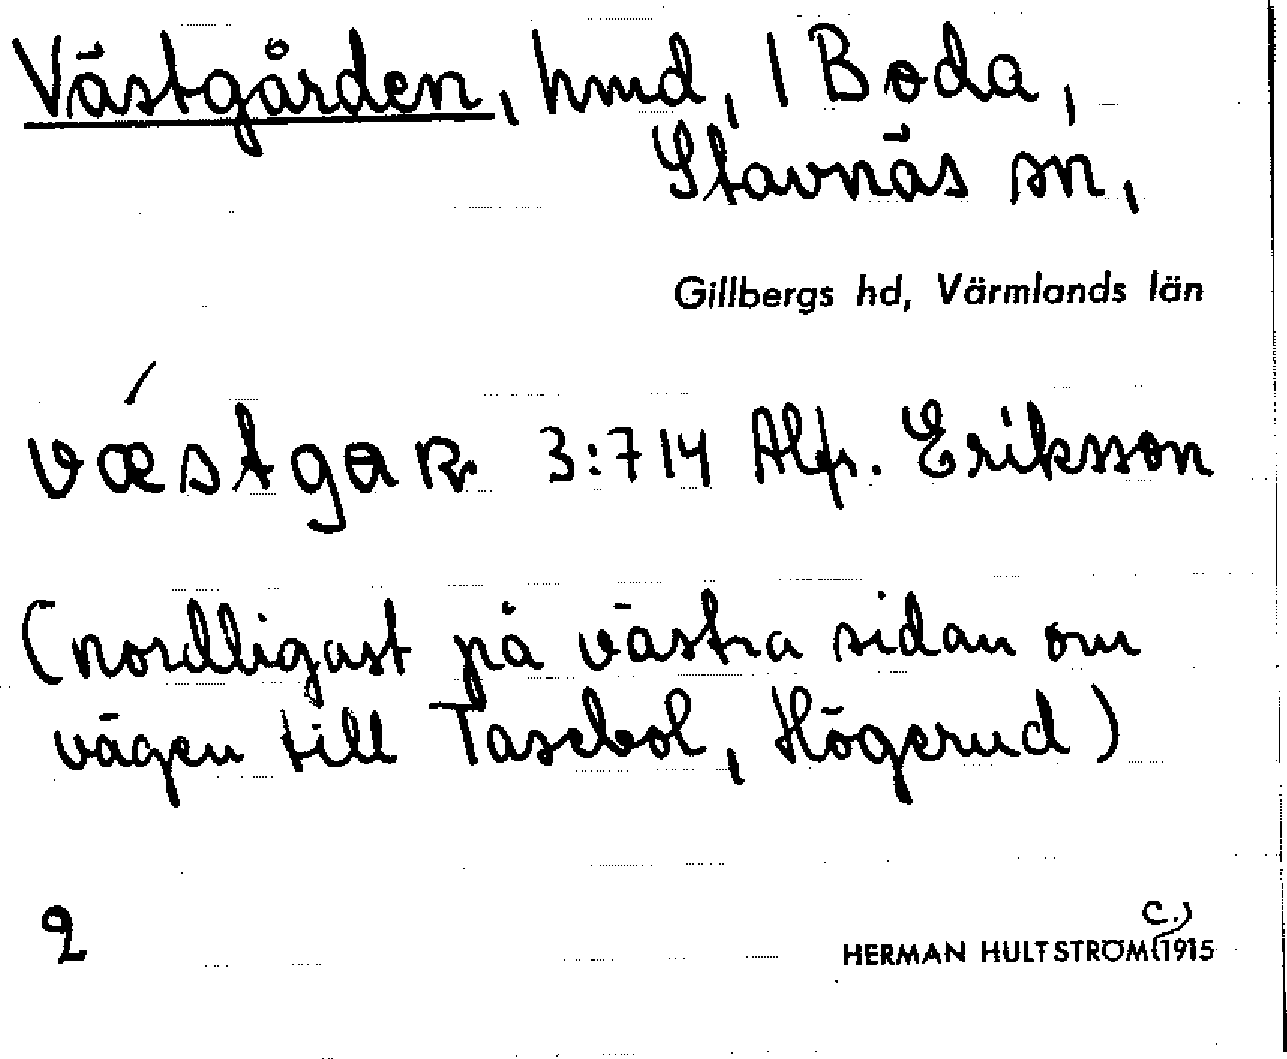 Västgården, hmd, 1 Boda,
Stavnäs sn,
Gillbergs hd, Värmlands län
væ´stgaɴ 3:714 Alfr. Eriksson
(nordligast på västra sidan om
vägen till Tasebol, Högerud)
2
HERMAN HULTSTRÖM (c.) 1915